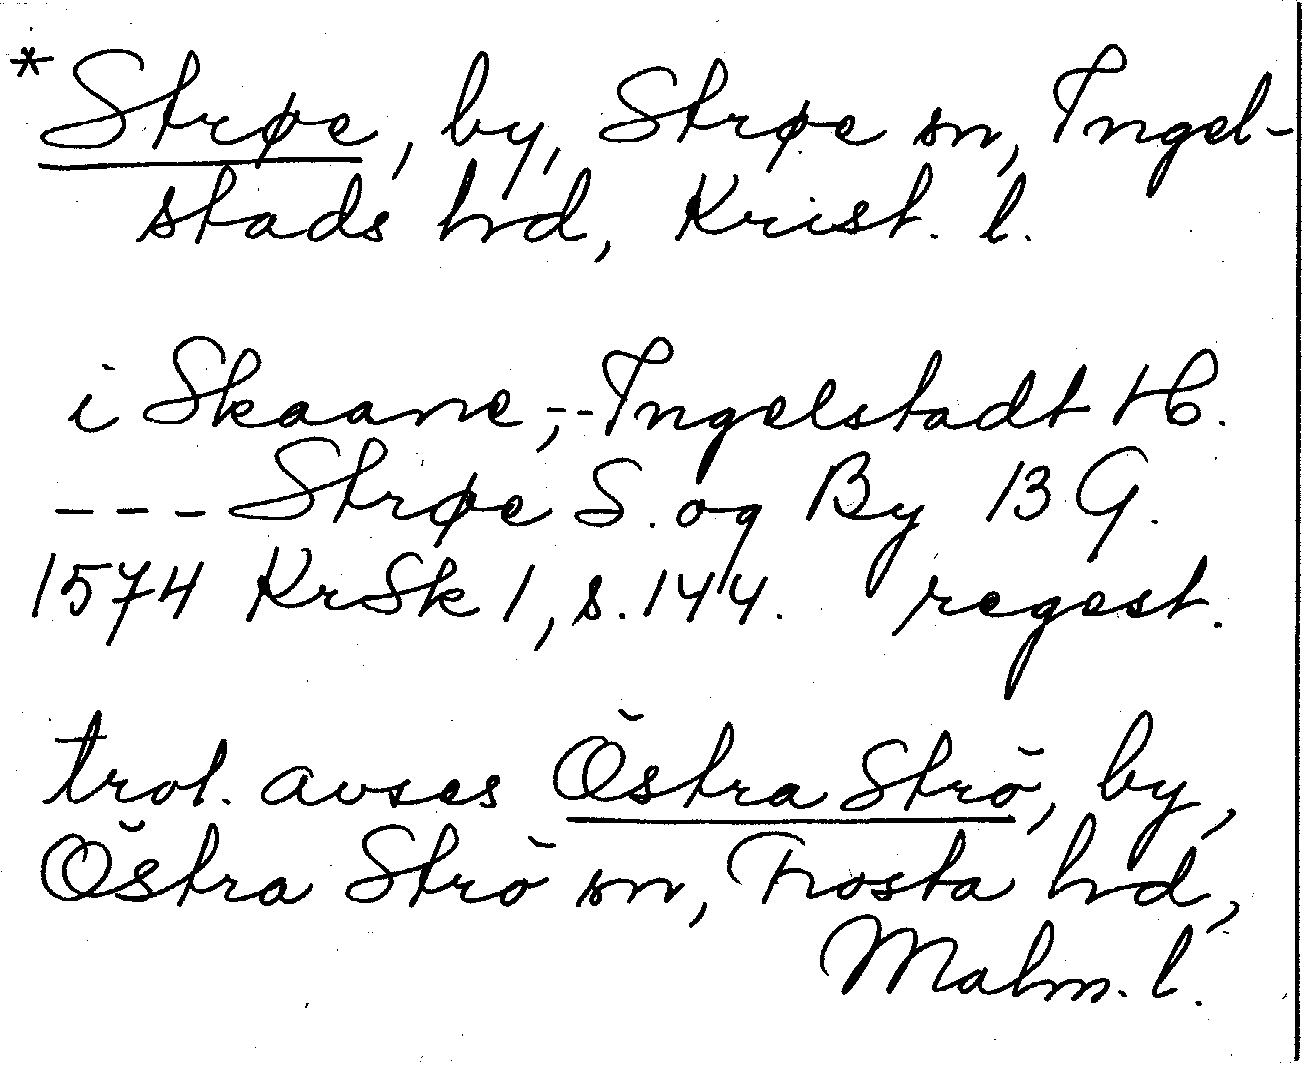 *Strøe, by, Strøe sn, Ingel-
stads hrd, Krist. l.
i Skaane, -- Ingelstadt H.
--- Strøe S. og By 13 G.
1574 KrSk 1, s. 144. regest.
trol. avses Östra Strö, by,
Östra Strö sn, Frosta hrd,
Malm. l.